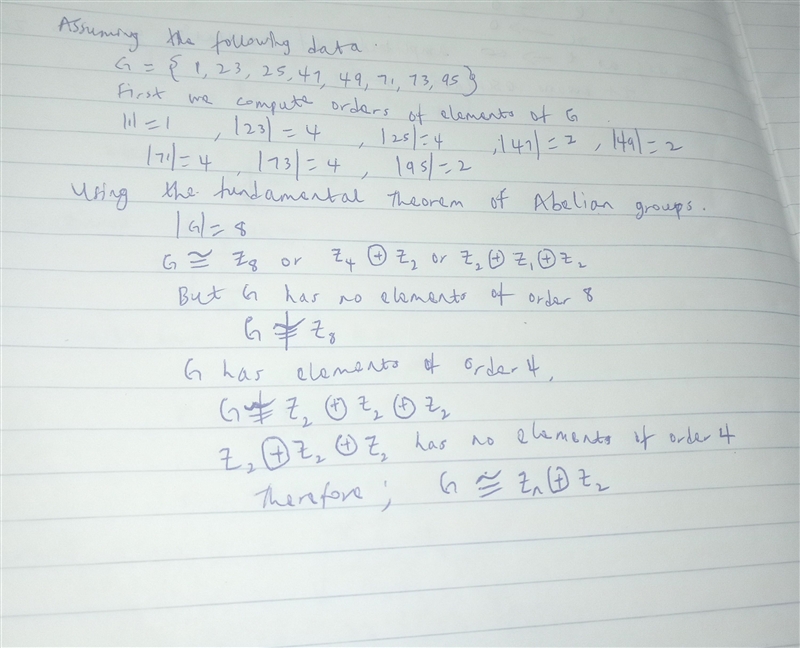 Assuming the following data.
G = { 1, 23, 25, 47, 49, 71, 73, 95}
First we compute orders of elements of G
|1| = 1 , |23| = 4 , |25| = 4 , |47| = 2 , |49| = 2
|71| = 4 , |73| = 4 , |95| = 2
Using the fundamental Theorem of Abelian groups.
|G| = 8
G ≅ Z₈ or Z₄ ⊕ Z₂ or Z₂ ⊕ Z₁ ⊕ Z₂
But G has no elements of order 8
G ≇ Z₈
G has elements of order 4,
G ≇ Z₂ ⊕ Z₂ ⊕ Z₂
Z₂ ⊕ Z₂ ⊕ Z₂ has no elements of order 4
Therefore; G ≅ Zₙ ⊕ Z₂